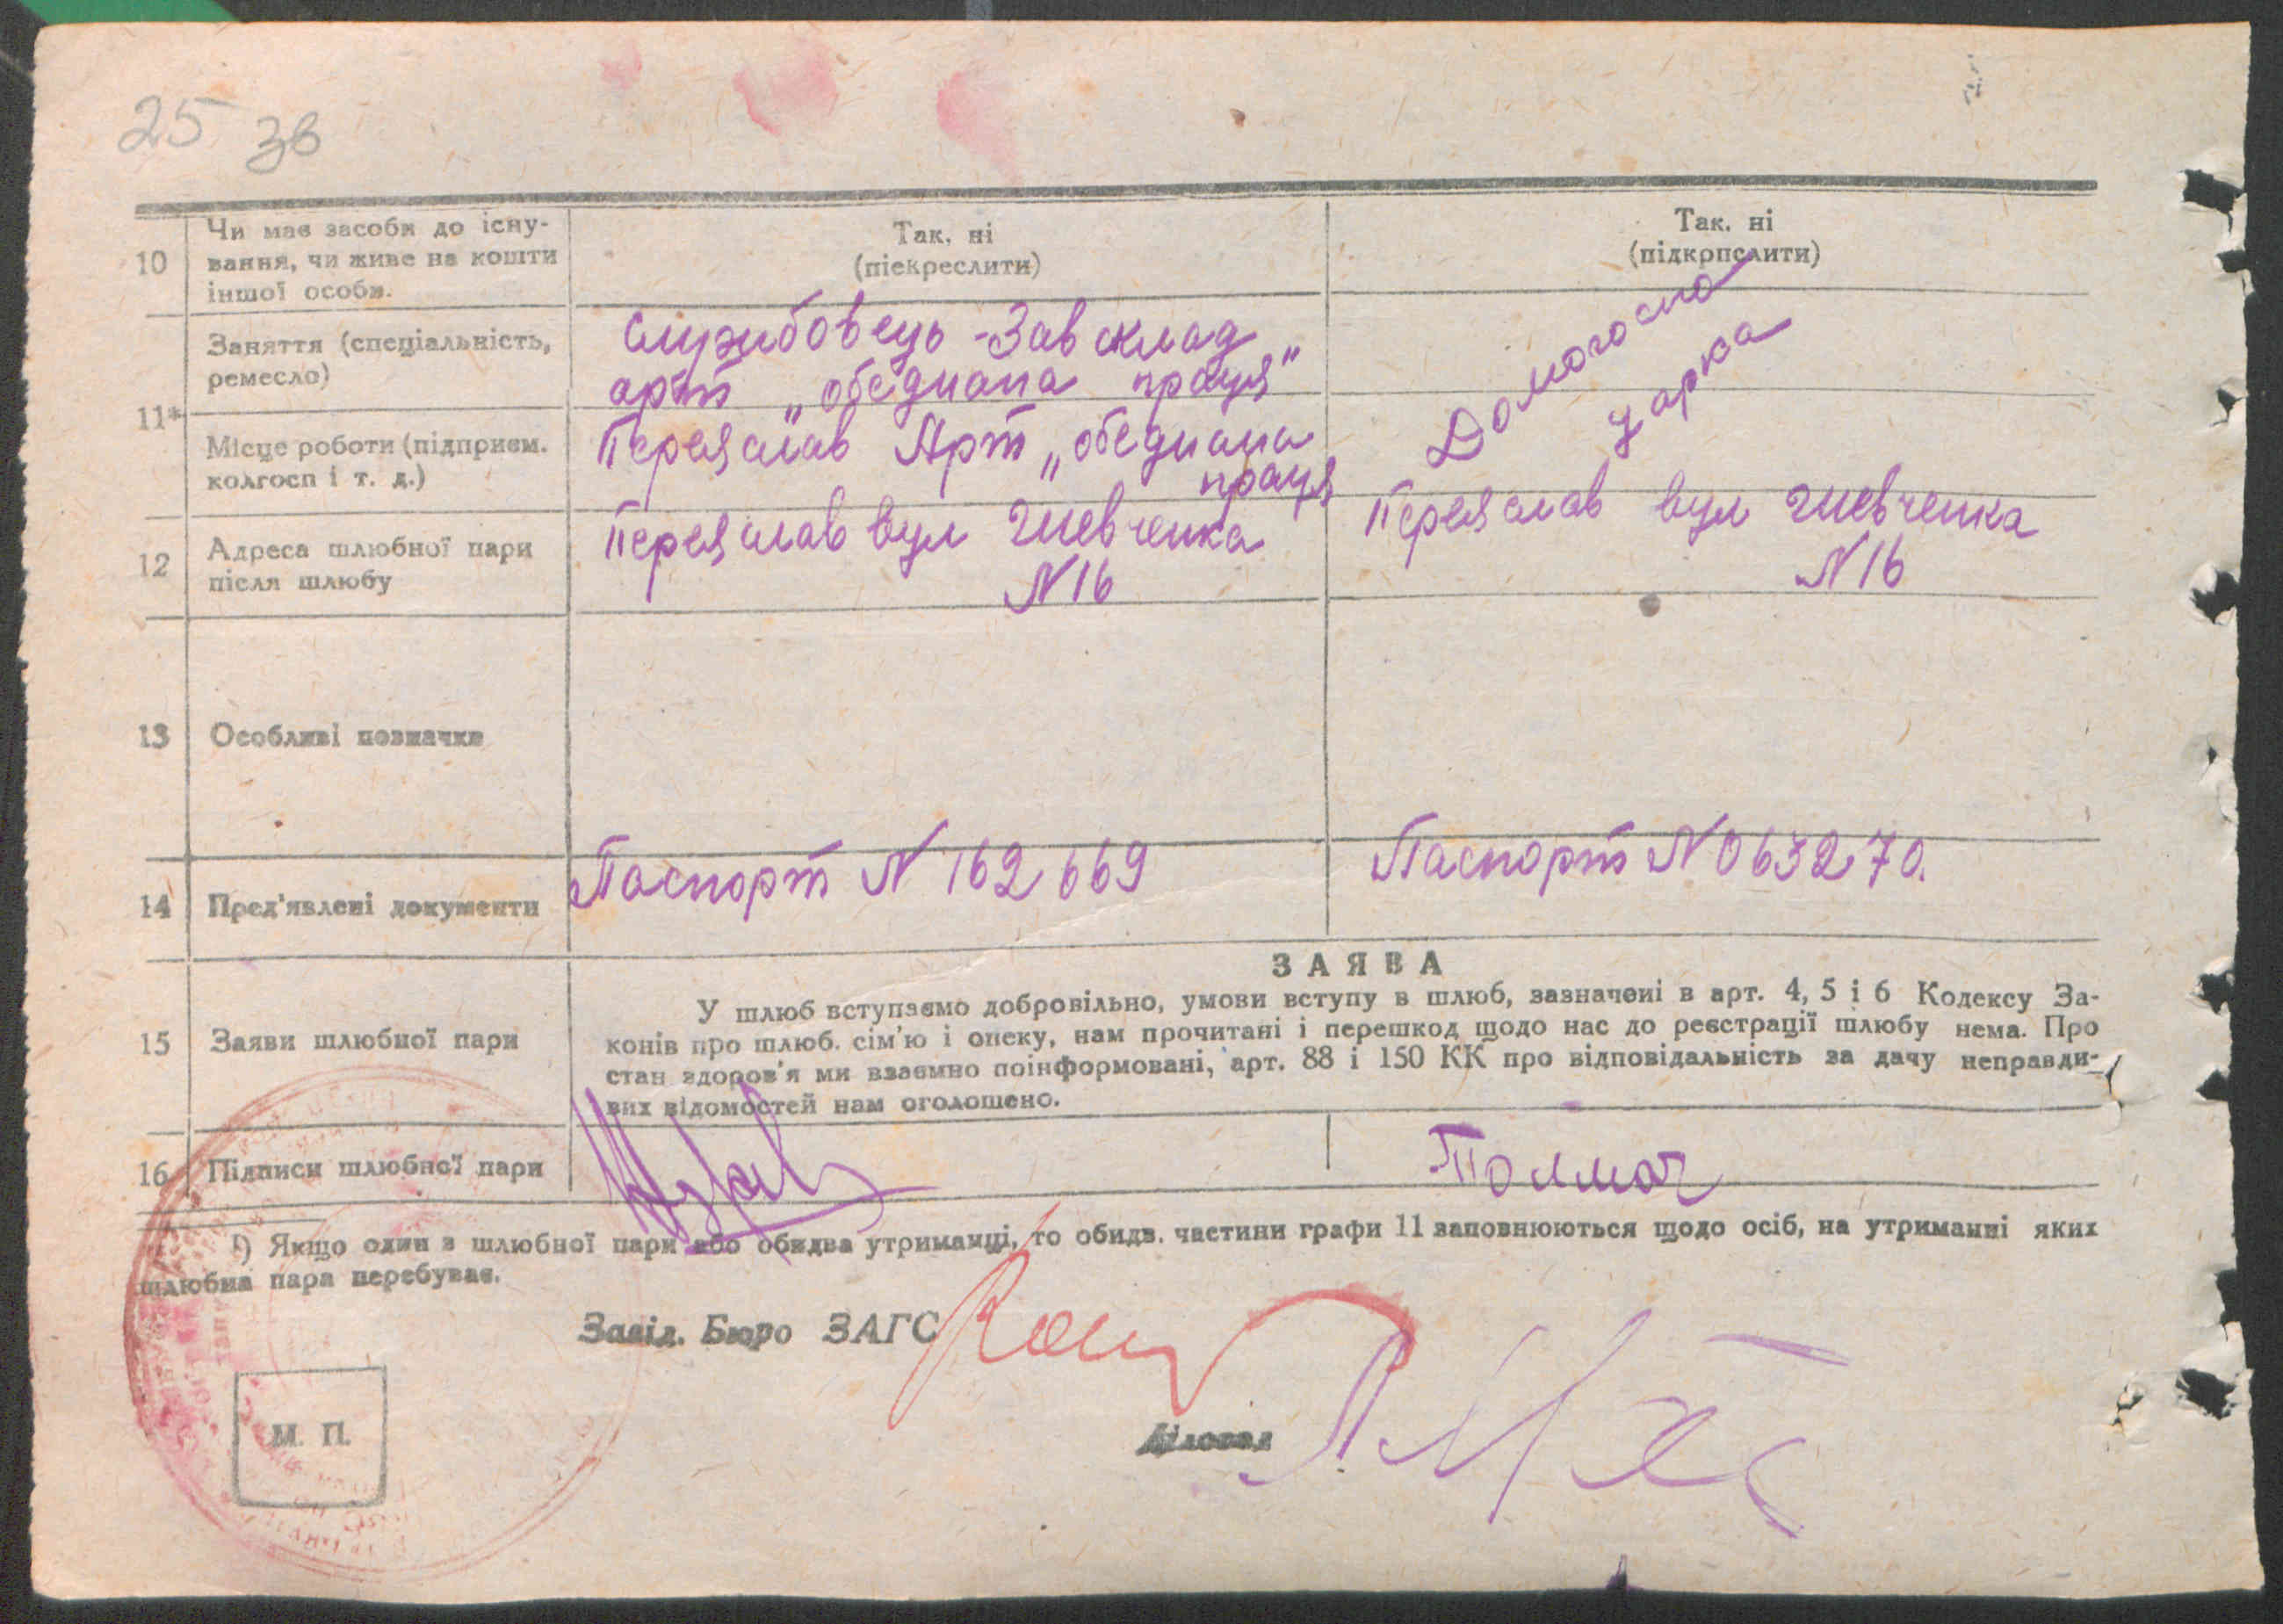 25 зв
10
Чи має засоби до існу-
вання, чи живе на кошти
іншої особи.
Так, ні
(піекреслити)
Так, ні
(підкрпслити)
11*
Заняття (спеціальність,
ремесло)
службовець - Зав склад
арт „обєднана праця"
Домогоспо
дарка
Місце роботи (підприєм.
колгосп і т. д.)
Переяслав Арт „обєднана
праця
12
Адреса шлюбної пари
після шлюбу
Переяслав вул Шевченка
N 16
Переяслав вул Шевченка
N 16
13
Особливі позначки
14
Пред'явлені документи
Паспорт N 162669
Паспорт N 063270.
15
Заяви шлюбної пари
ЗАЯВА
У шлюб вступаємо добровільно, умови вступу в шлюб, зазначені в арт. 4, 5 і 6 Кодексу За-
конів про шлюб. сім'ю і опеку, нам прочитані і перешкод щодо нас до реєстрації шлюбу нема. Про
стан здоров'я ми взаємно поінформовані, арт. 88 і 150 КК про відповідальність за дачу неправди-
вих відомостей нам оголошено.
16
Підписи шлюбної пари
Толмач
¹) Якщо один з шлюбної пари або обидва утриманці, то обидв. частини графи 11 заповнюються щодо осіб, на утриманні яких
шлюбна пара перебуває.
Завід. Бюро ЗАГС
Діловод
М. П.